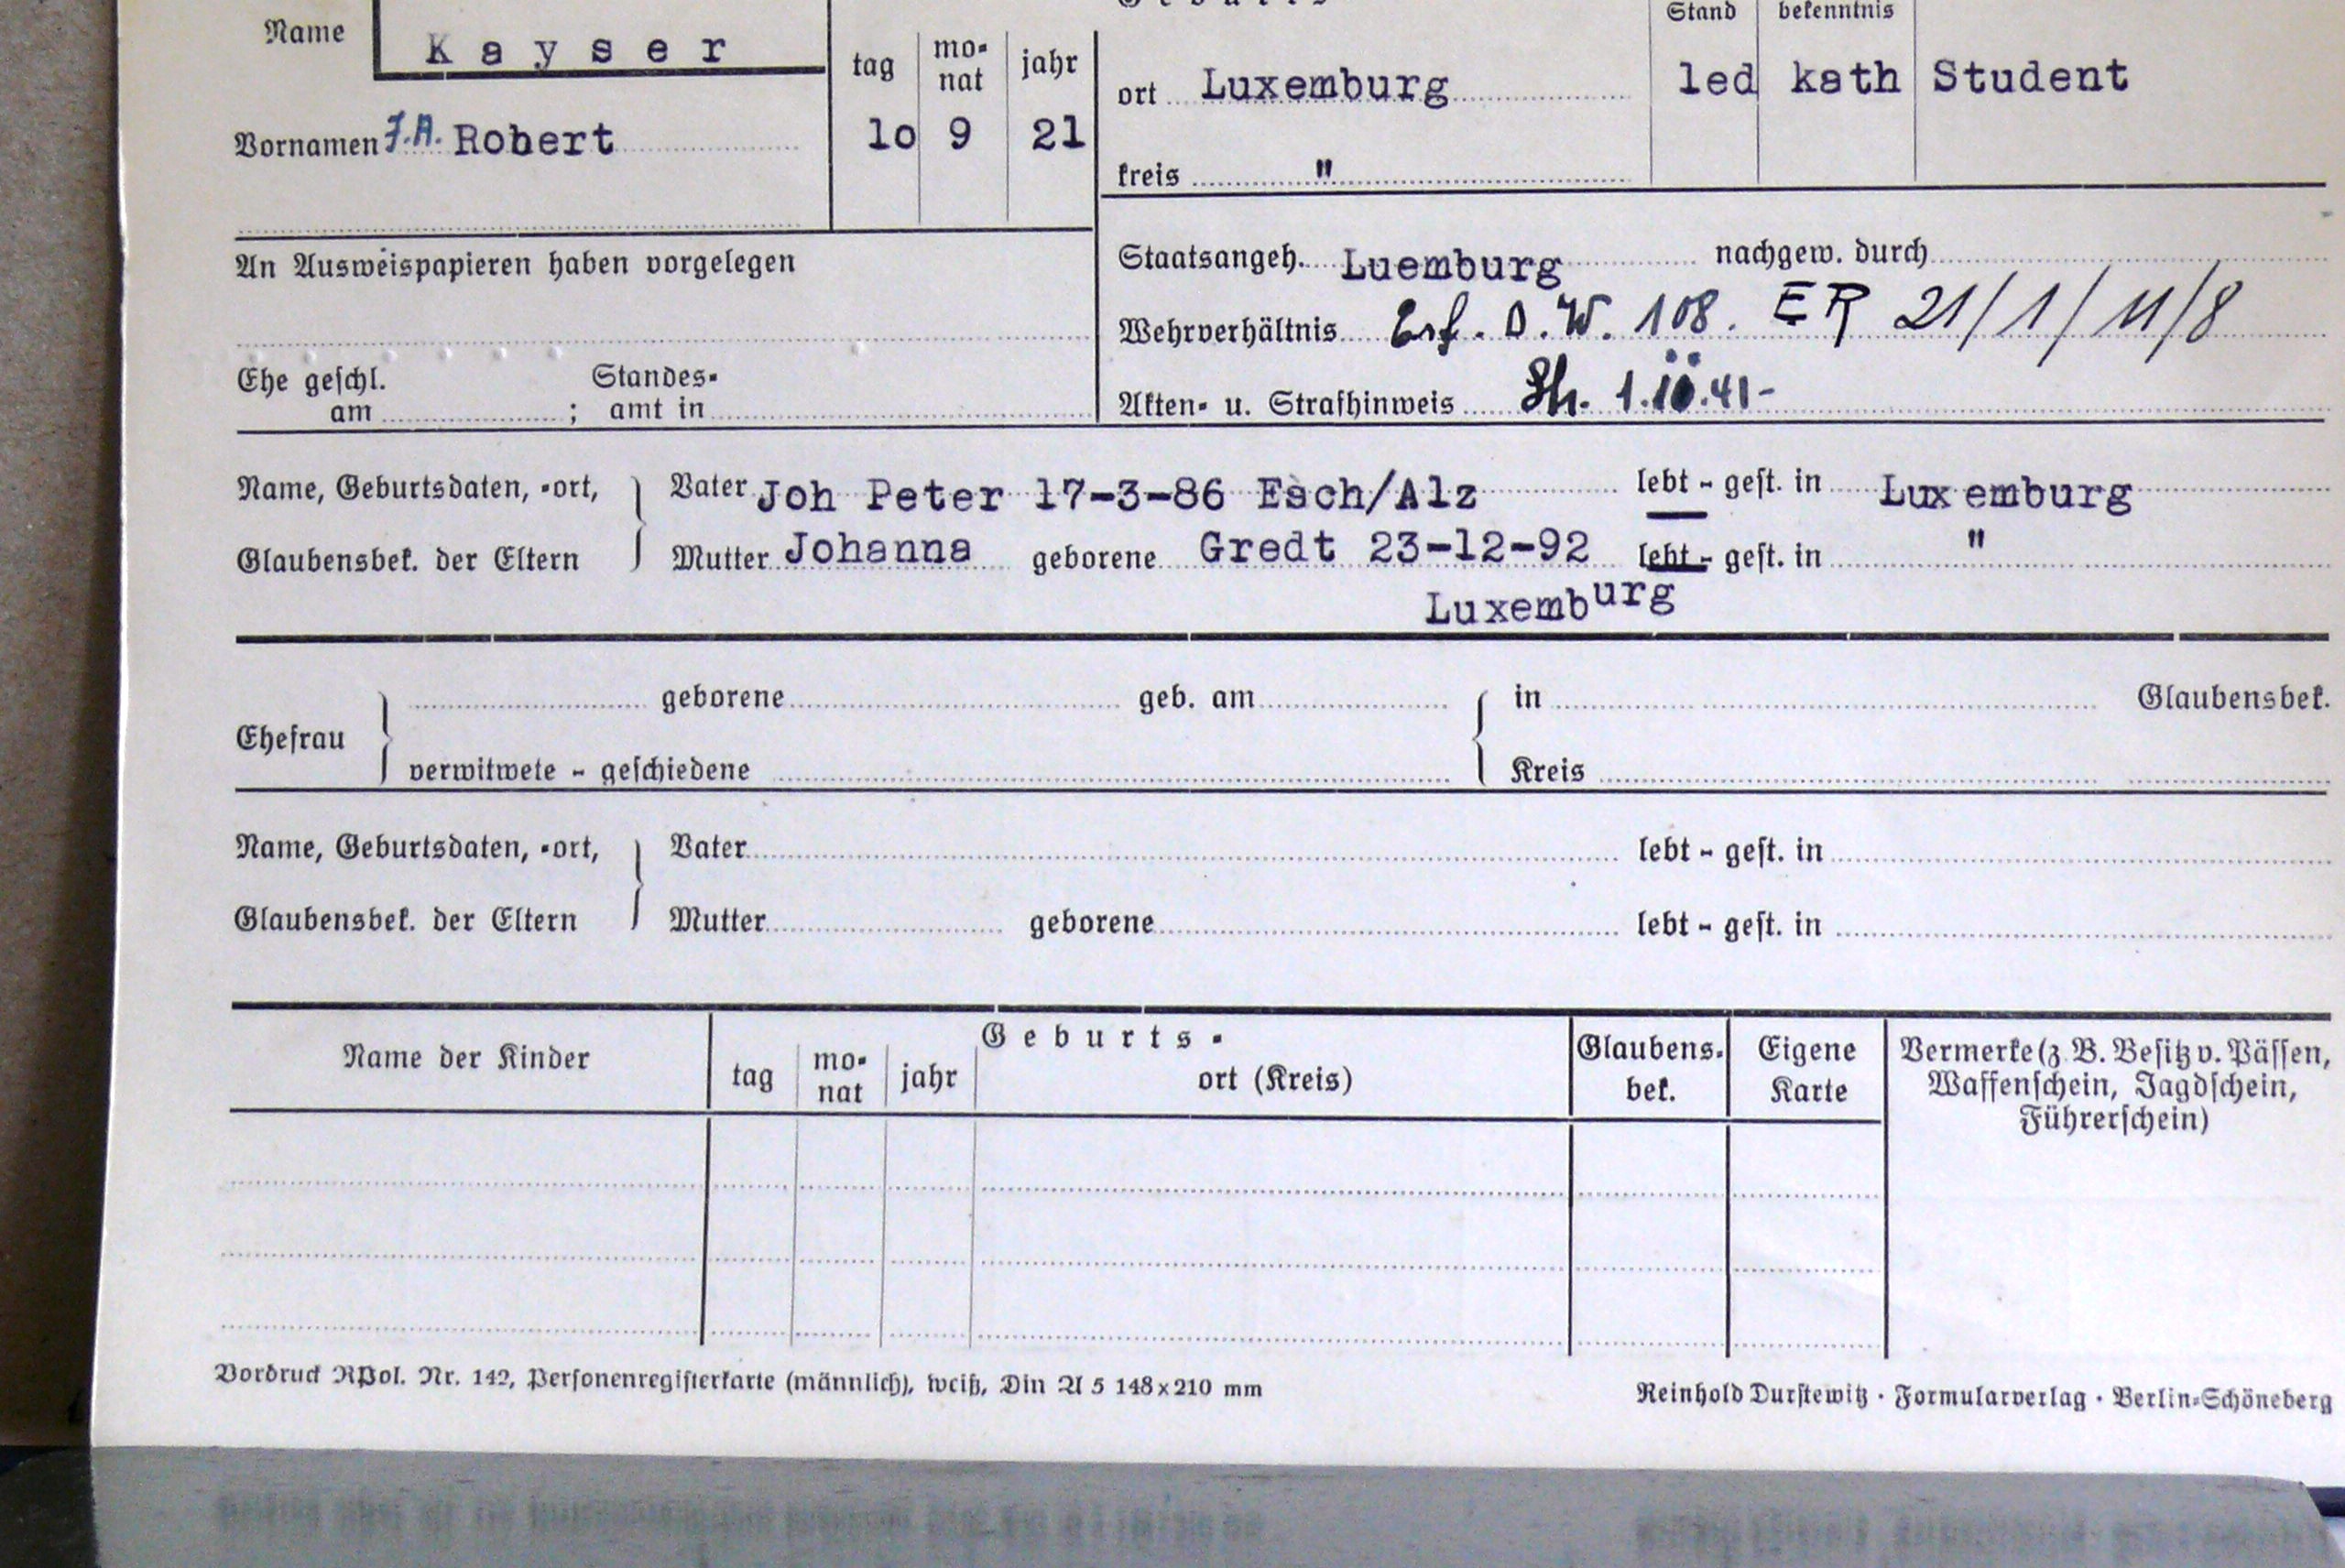 Geburts
Stand bekenntnis
Name Kayser
tag mo-nat jahr
ort Luxemburg led kath Student
Vornamen J.A. Robert 10 9 21
kreis "
An Ausweispapieren haben vorgelegen
Staatsangeh. Luemburg nachgew. durch
Wehrverhältnis Erf. D.W. 108. ER 21/1/11/8
Ehe geschl. Standes-
am ; amt in
Akten- u. Strafhinweis 1.10.41-
Name, Geburtsdaten, -ort, Vater Joh Peter 17-3-86 Esch/Alz lebt - gest. in Luxemburg
Glaubensbek. der Eltern Mutter Johanna geborene Gredt 23-12-92 lebt - gest. in "
Luxemburg
geborene geb. am in Glaubensbek.
Ehefrau
verwitwete - geschiedene Kreis
Name, Geburtsdaten, -ort, Vater lebt - gest. in
Glaubensbek. der Eltern Mutter geborene lebt - gest. in
Name der Kinder Geburts- Glaubens-bek. Eigene Karte Vermerke (z. B. Besitz v. Pässen,
tag mo-nat jahr ort (Kreis) Waffenschein, Jagdschein,
Führerschein)
Vordruck RPol. Nr. 142, Personenregisterkarte (männlich), weiß, Din A 5 148x210 mm
Reinhold Durstewitz · Formularverlag · Berlin-Schöneberg